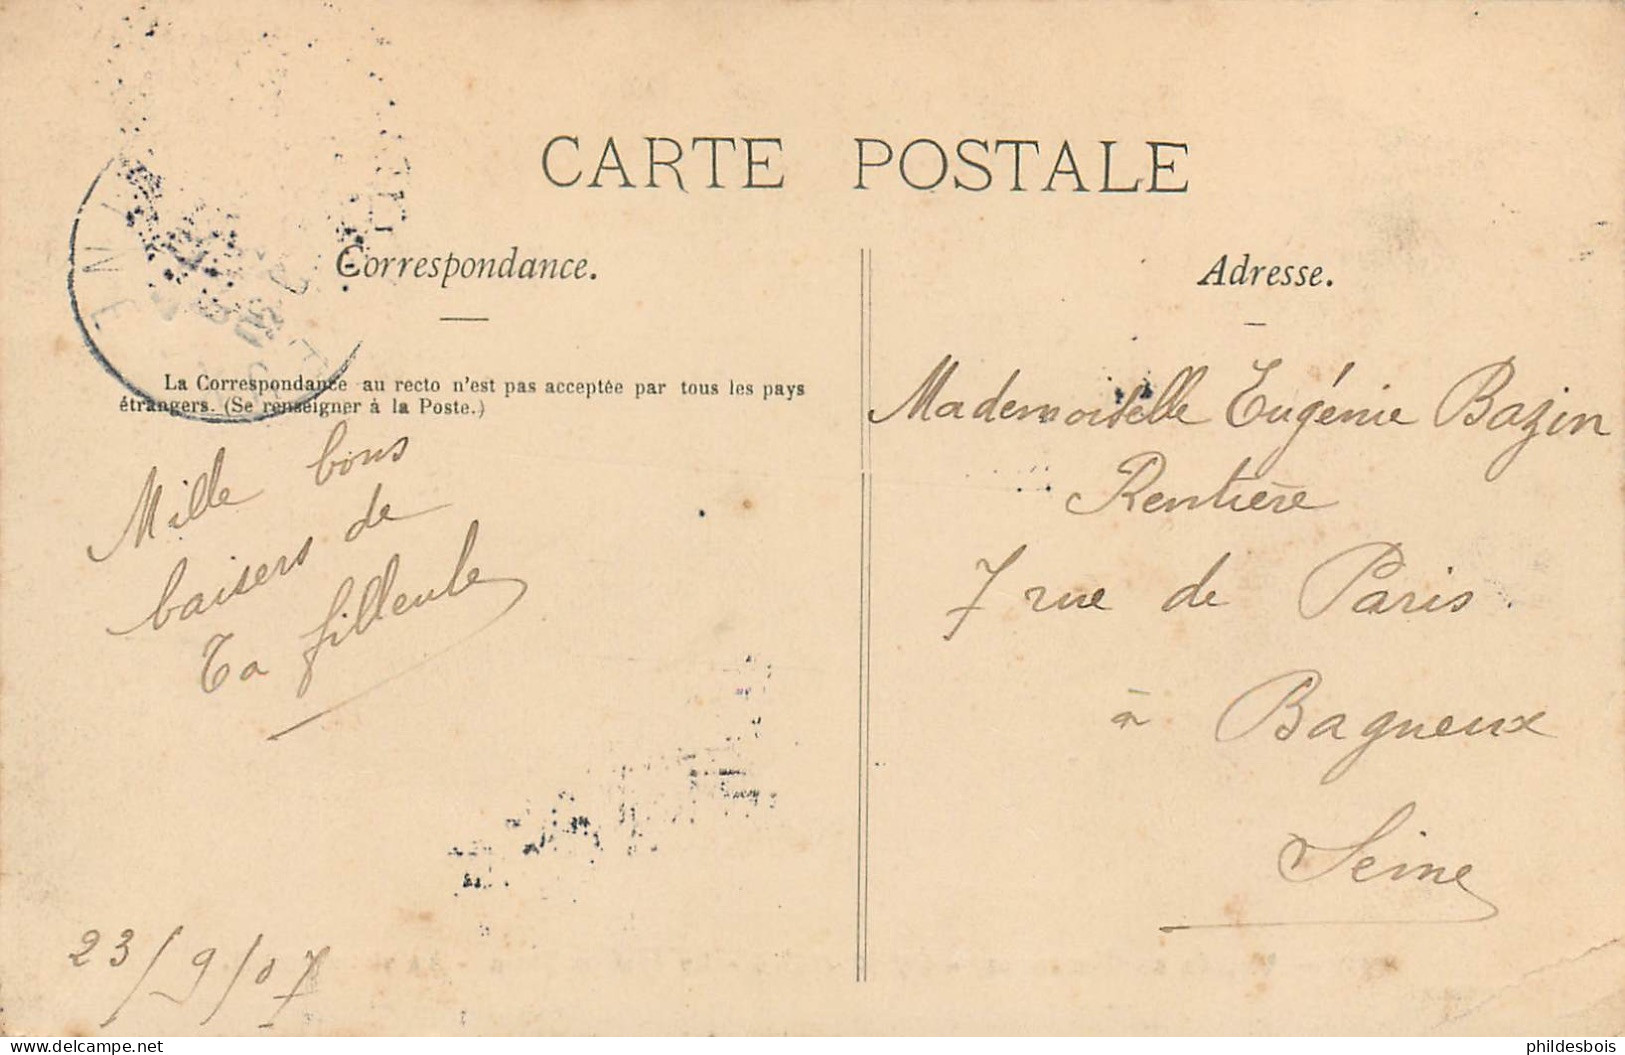 CARTE POSTALE
Correspondance.
La Correspondance au recto n'est pas acceptée par tous les pays
étrangers. (Se renseigner à la Poste.)
Mille bons
baisers de
Ta filleule
23/9/07
Adresse.
Mademoiselle Eugénie Bazin
Rentière
7 rue de Paris.
à Bagneux
Seine
www.delcampe.net
phildesbois